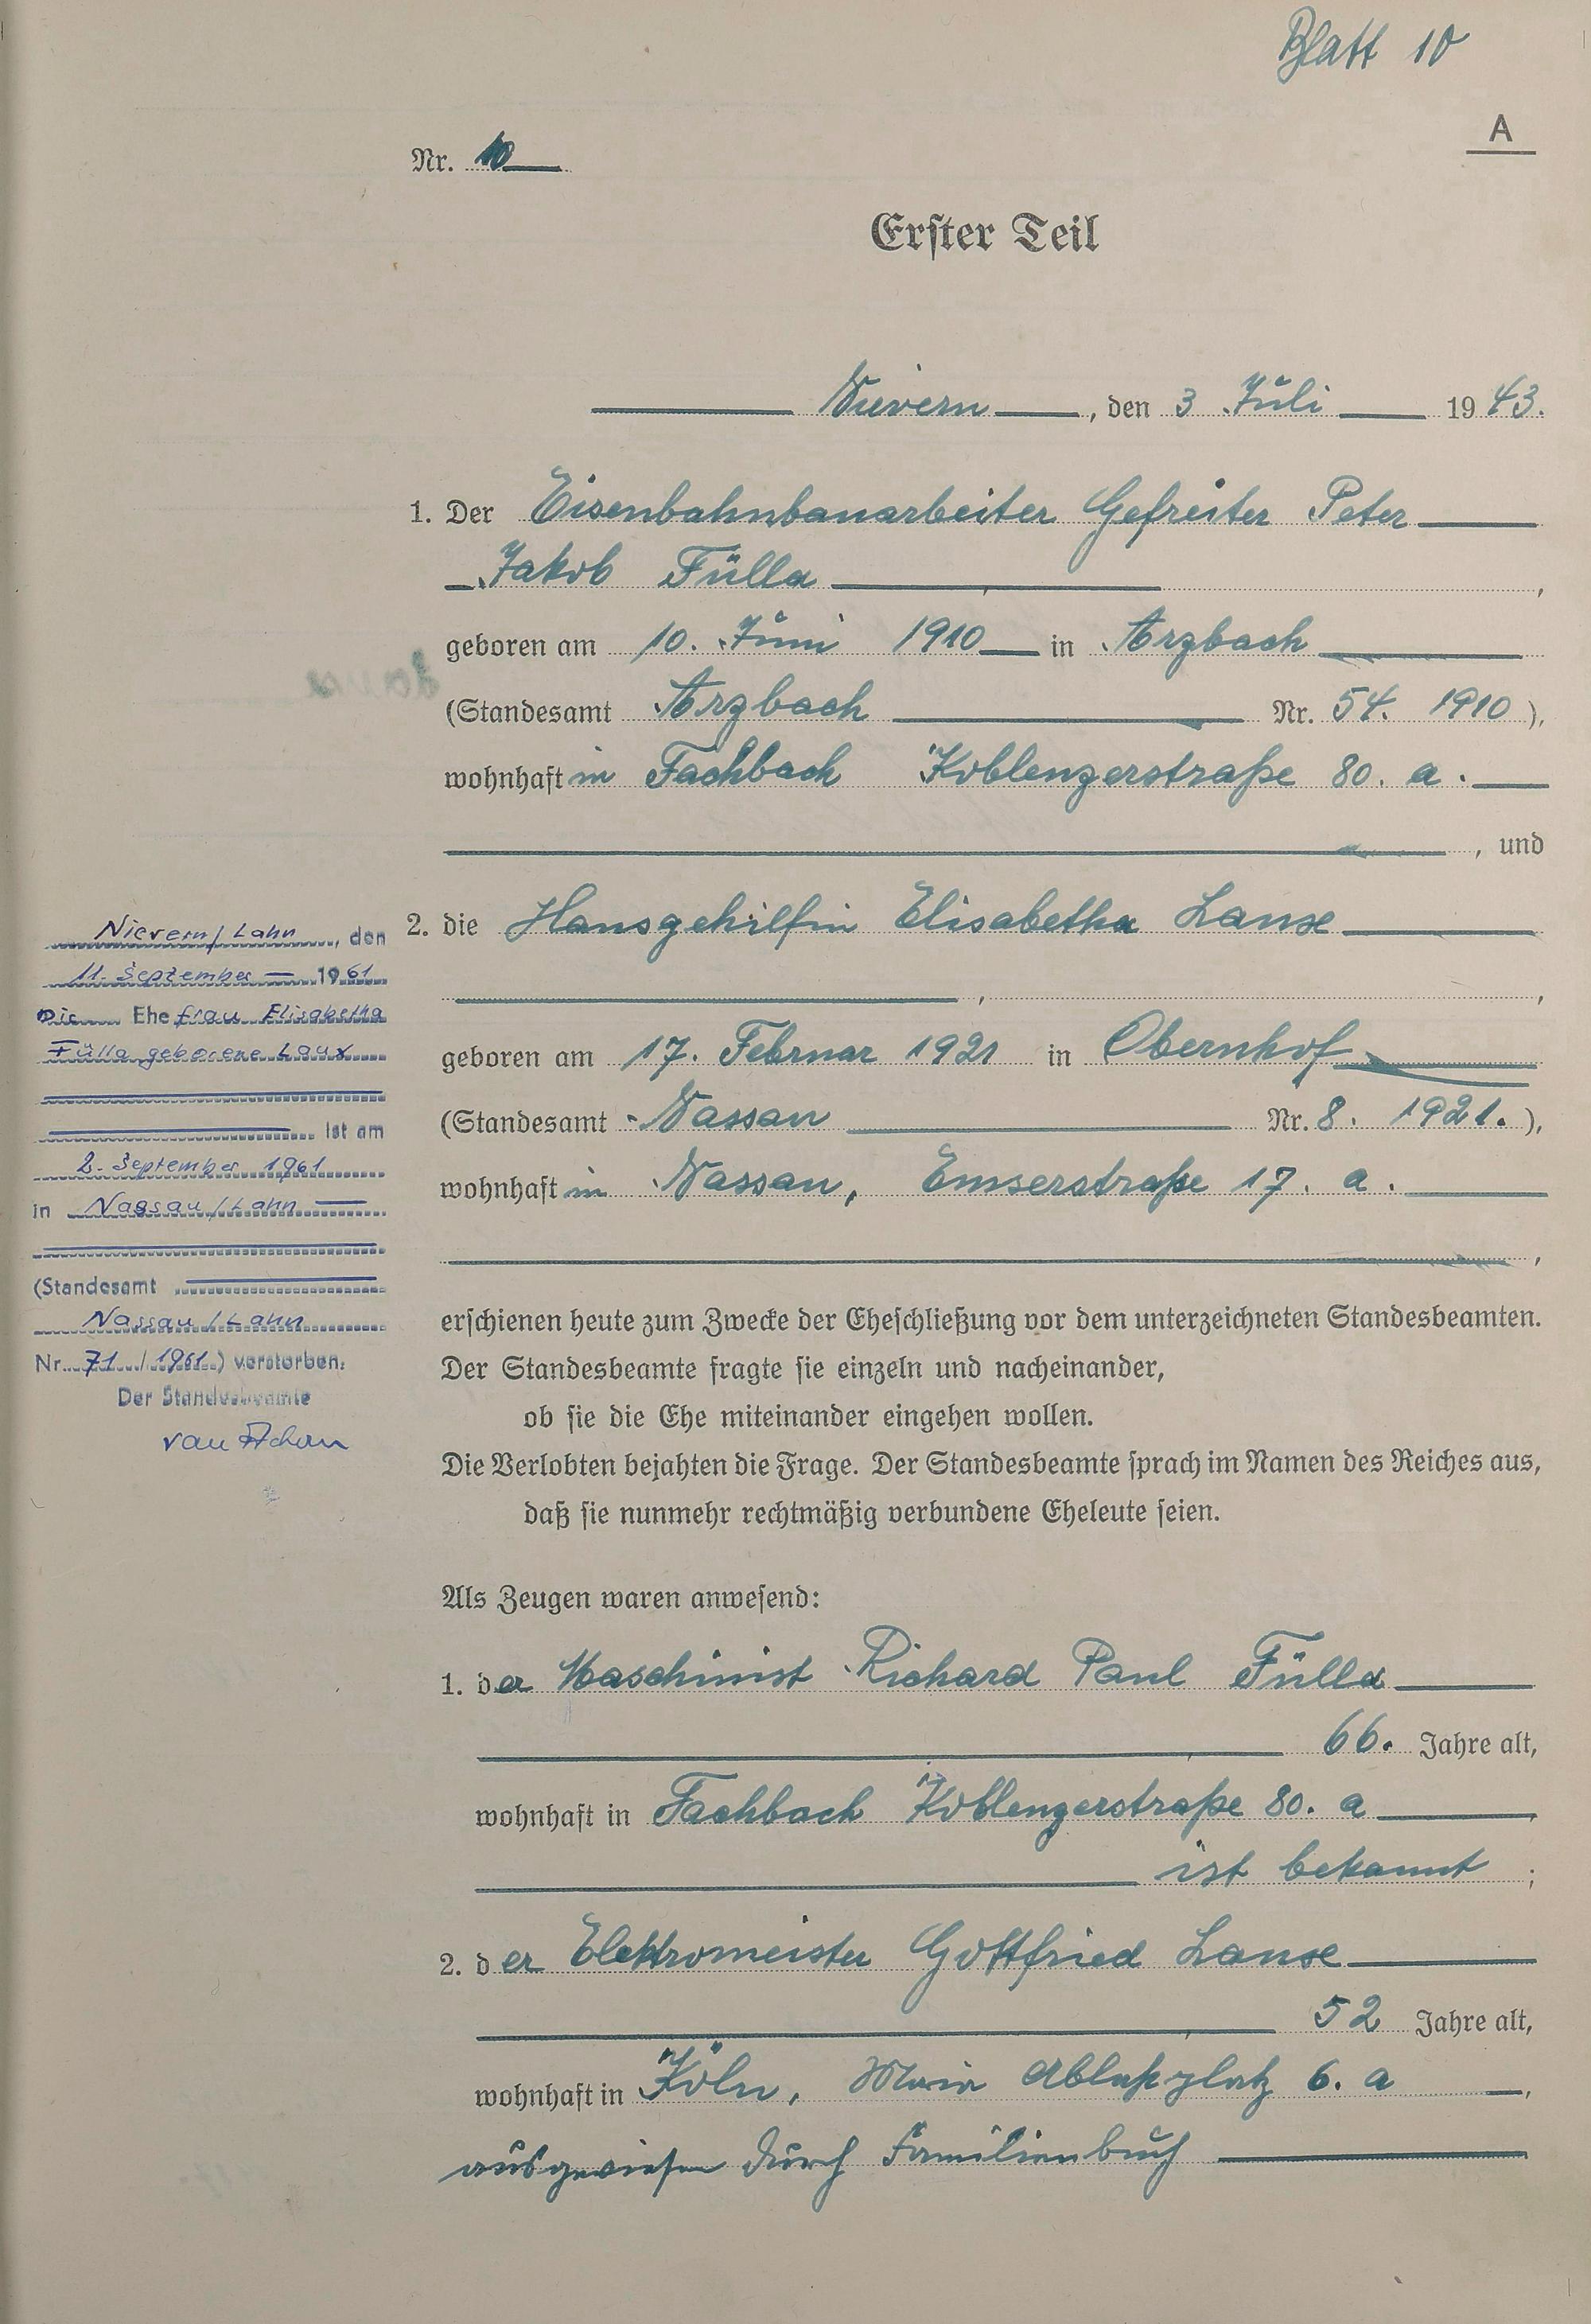 Blatt 10
A
Nr. 10
Erster Teil
Nievern, den 3 Juli 1943.
1. Der Eisenbahnbauarbeiter Gefreiter Peter
Jakob Fülla,
geboren am 10. Juni 1910 in Arzbach
(Standesamt Arzbach Nr. 54. 1910),
wohnhaft in Fachbach Koblenzerstraße 80. a.
, und
2. die Hausgehilfin Elisabetha Laux
,
geboren am 17. Februar 1921 in Obernhof
(Standesamt Nassau Nr. 8. 1921.),
wohnhaft in Nassau, Emserstraße 17. a.
,
erschienen heute zum Zwecke der Eheschließung vor dem unterzeichneten Standesbeamten.
Der Standesbeamte fragte sie einzeln und nacheinander,
ob sie die Ehe miteinander eingehen wollen.
Die Verlobten bejahten die Frage. Der Standesbeamte sprach im Namen des Reiches aus,
daß sie nunmehr rechtmäßig verbundene Eheleute seien.
Als Zeugen waren anwesend:
1. der Maschinist Richard Paul Fülla
66. Jahre alt,
wohnhaft in Fachbach Koblenzerstraße 80. a
ist bekannt;
2. der Elektromeister Gottfried Laux
52 Jahre alt,
wohnhaft in Köln, Maria Ablaßplatz 6. a,
ausgewiesen durch Familienbuch
Nievern/Lahn, den
11. September 1961
Die Ehefrau Elisabetha
Fülla geborene Laux
ist am
2. September 1961
in Nassau/Lahn
(Standesamt
Nassau/Lahn
Nr. 71/1961) verstorben.
Der Standesbeamte